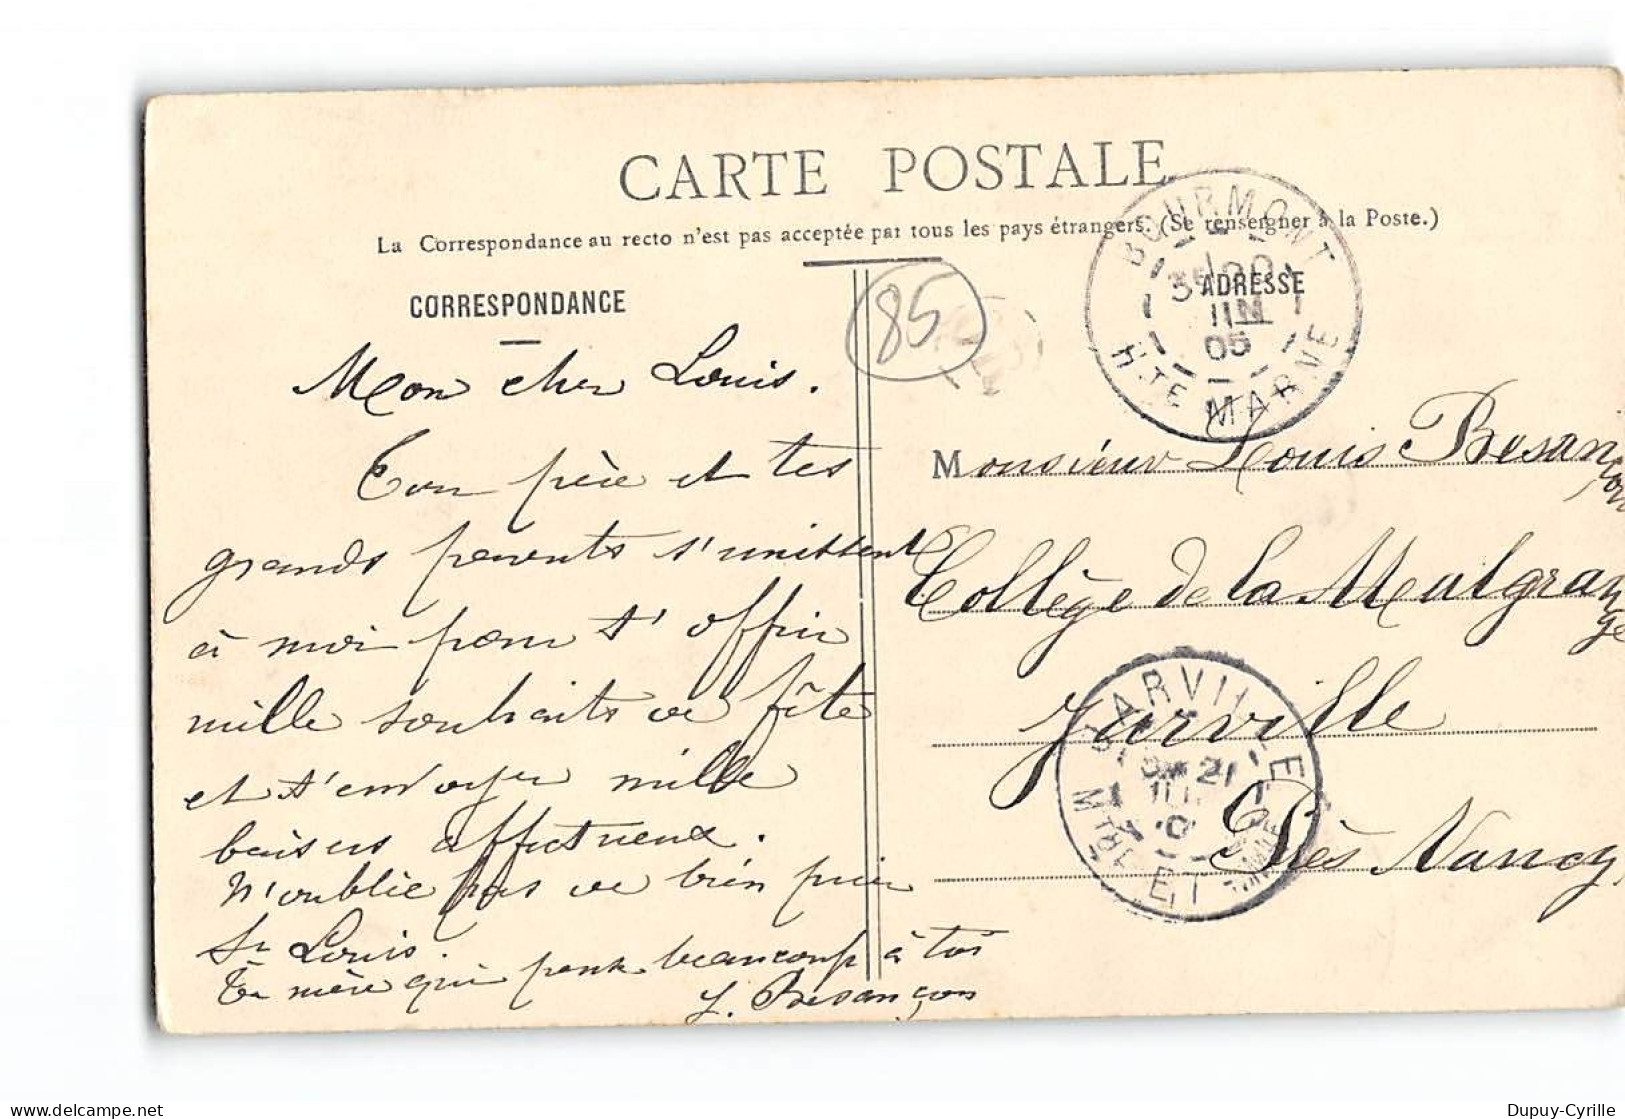 CARTE POSTALE
La Correspondance au recto n'est pas acceptée par tous les pays étrangers. (Se renseigner à la Poste.)
CORRESPONDANCE
85
ADRESSE
BOURMONT
05
HTE MARNE
Mon cher Louis.
Ton père et tes
grands parents s'unissent
à moi pour t'offrir
mille souhaits de fête
et t'envoyer mille
baisers affectueux.
N'oublie pas de bien prier
St Louis.
Ta mère qui pense beaucoup à toi
J. Besançon
Monsieur Louis Besançon
Collège de la Malgrange
Jarville
Près Nancy
JARVILLE
21
MRTHE ET
Dupuy-Cyrille